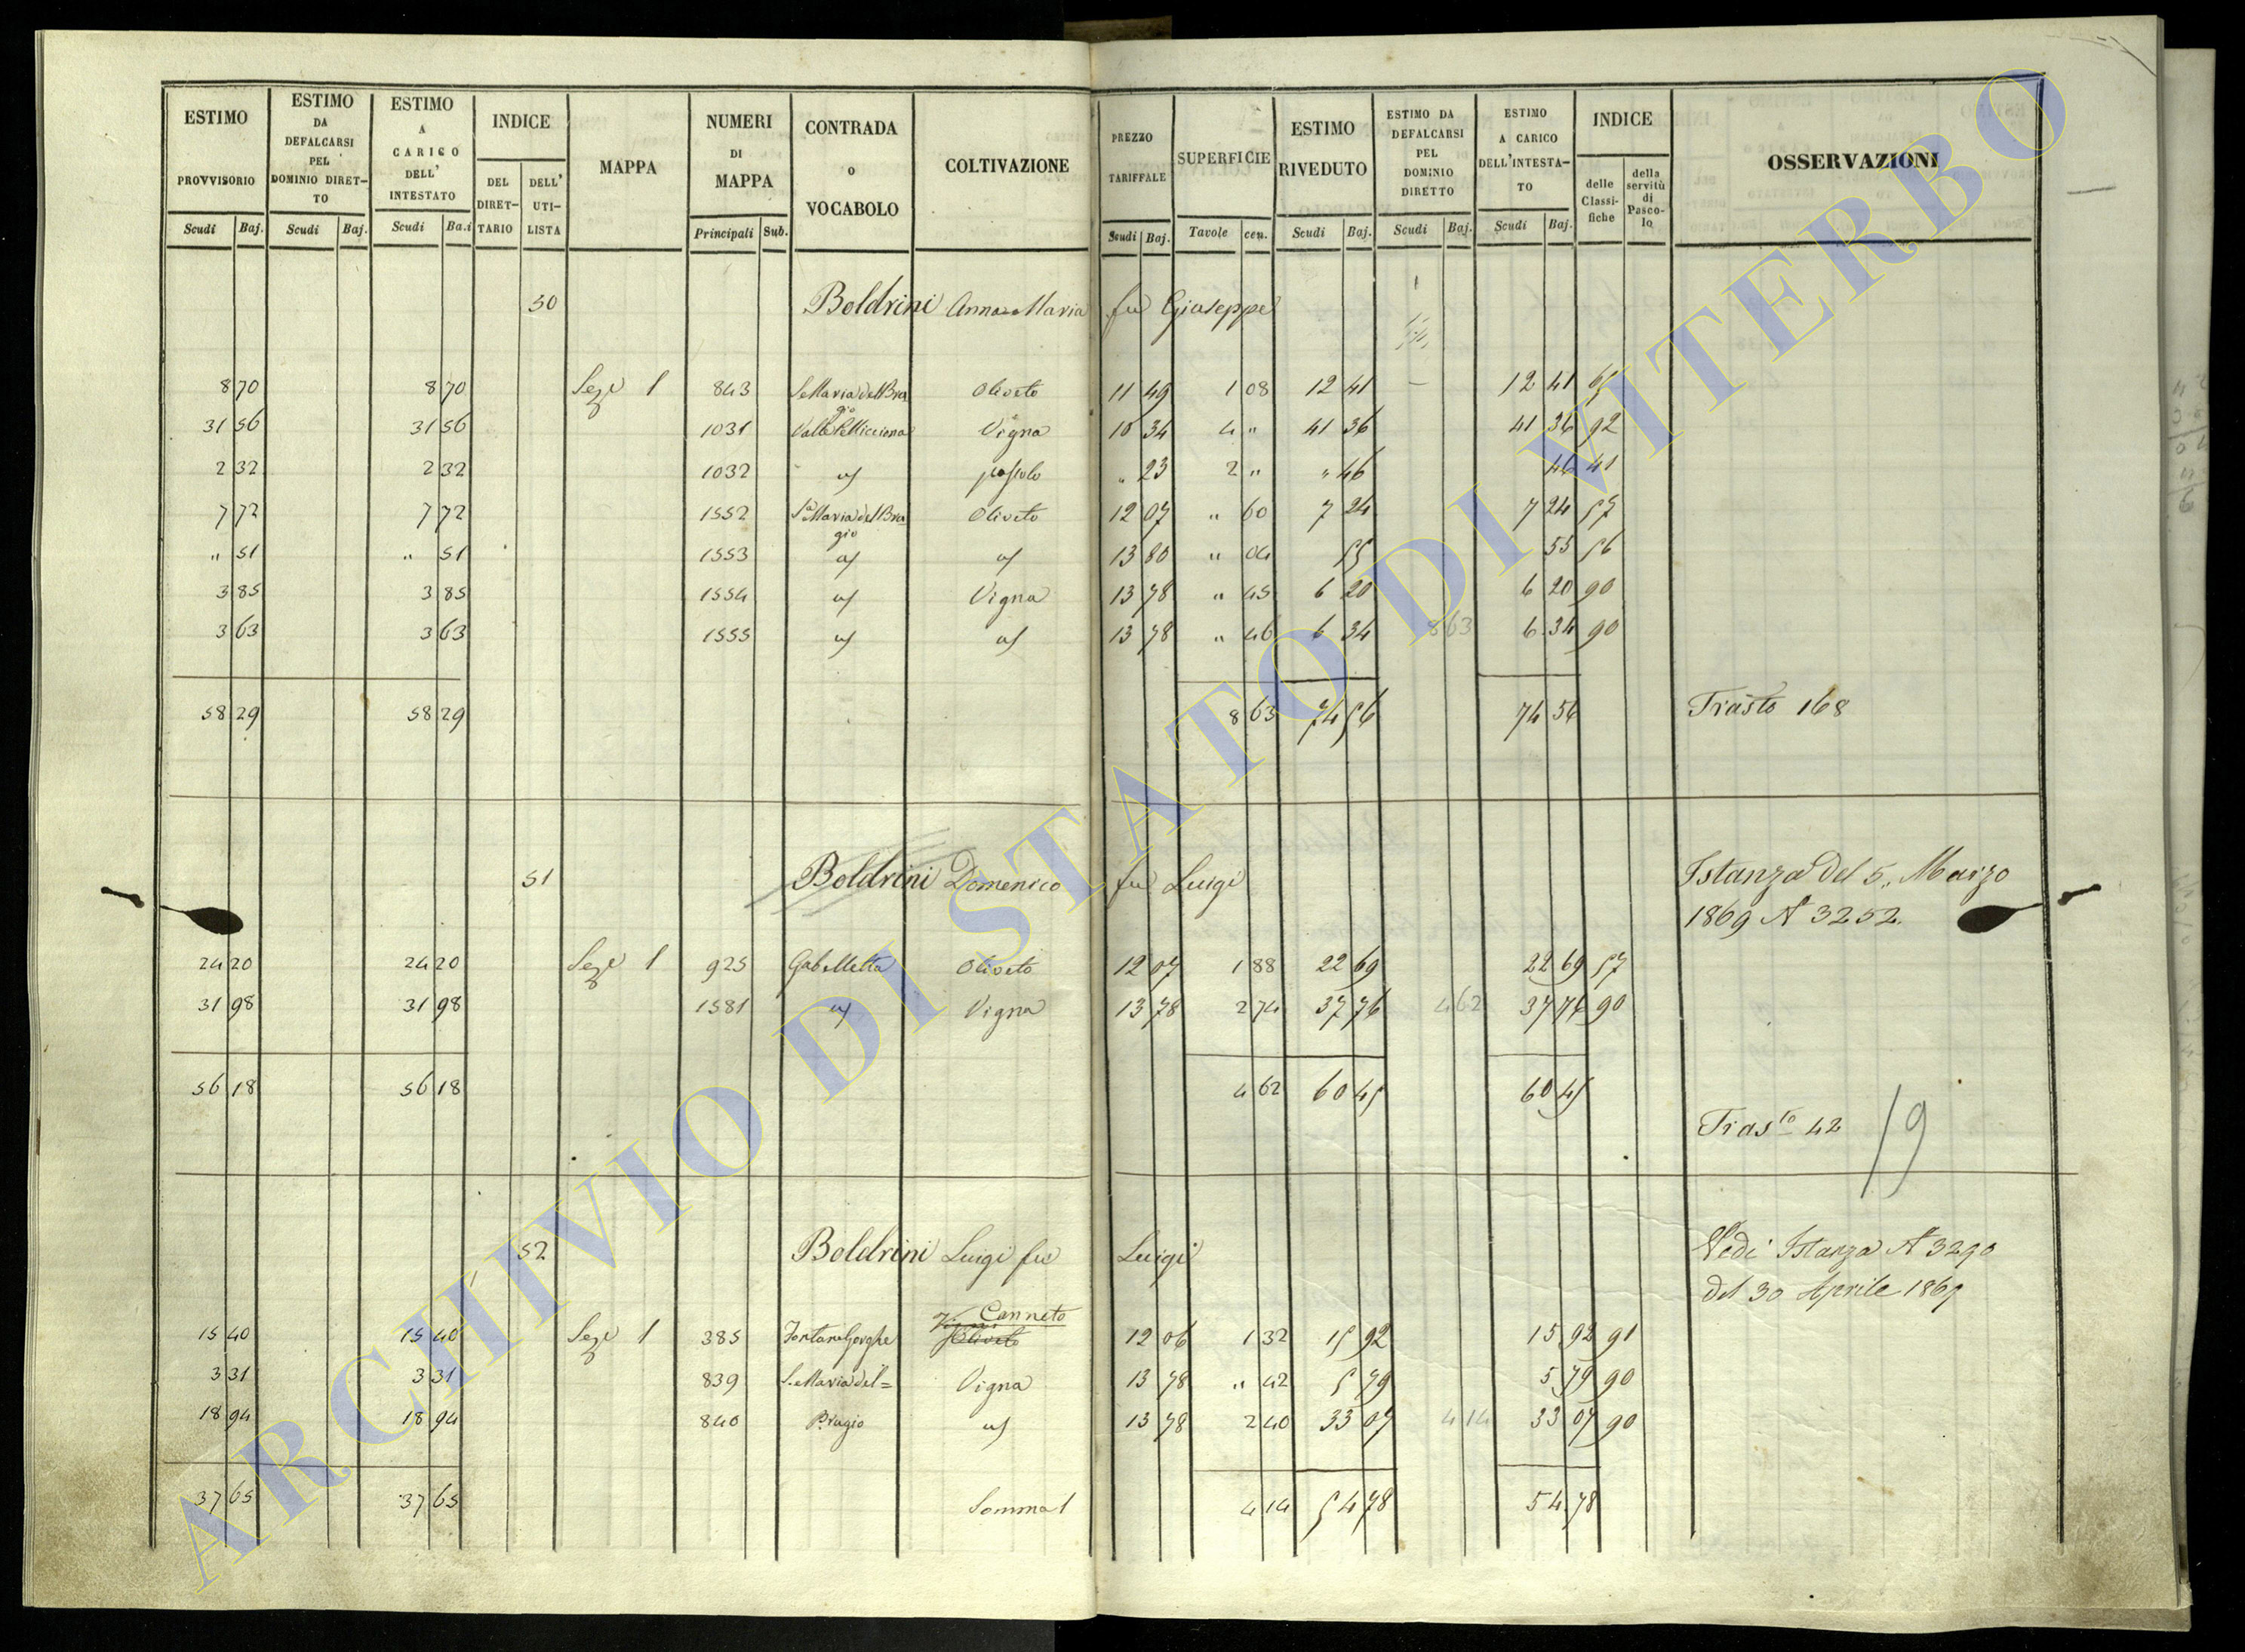 ESTIMO PROVVISORIO Scudi Baj.
ESTIMO DA DEFALCARSI PEL DOMINIO DIRET-TO Scudi Baj.
ESTIMO A CARICO DELL' INTESTATO Scudi Ba.i
INDICE DEL DIRET-TARIO DELL' UTI-LISTA
MAPPA
NUMERI DI MAPPA Principali Sub.
CONTRADA O VOCABOLO
COLTIVAZIONE
PREZZO TARIFFALE Scudi Baj.
SUPERFICIE Tavole cen.
ESTIMO RIVEDUTO Scudi Baj.
ESTIMO DA DEFALCARSI PEL DOMINIO DIRETTO Scudi Baj.
ESTIMO A CARICO DELL'INTESTA-TO Scudi Baj.
INDICE delle Classi-fiche della servitù di Pasco-lo
OSSERVAZIONI
50 Boldrini Anna Maria fu Giuseppe
8 70 8 70 Seze 1 843 S. Maria del Bra gio Oliveto 11 49 1 08 12 41 — 12 41
31 56 31 56 1031 Valle Pellicciona Vigna 10 34 4 " 41 36 41 36 92
2 32 2 32 1032 as pascolo " 23 2 " " 46 46 41
7 72 7 72 1552 Sa Maria del Bra= gio Oliveto 12 07 " 60 7 24 7 24 57
" 51 " 51 1553 as as 13 80 " 04 55 55 56
3 85 3 85 1554 as Vigna 13 78 " 45 6 20 6 20 90
3 63 3 63 1555 as as 13 78 " 46 6 34 8 63 6 34 90
58 29 58 29 8 63 74 56 74 56 Trasto 168
51 Boldrini Domenico fu Luigi Istanza del 5,, Marzo
1869 N 3252.
24 20 24 20 Seze 1 925 Gabelletta Oliveto 12 07 1 88 22 69 22 69 57
31 98 31 98 1581 as Vigna 13 78 2 74 37 76 4 62 37 76 90
56 18 56 18 4 62 60 45 60 45
Trasto 42 19
52 Boldrini Luigi fu Luigi Vedi Istanza N 3290
del 30 Aprile 1869
Canneto
15 40 15 40 Seze 1 385 Fontana Gorghe Oliveto 12 06 1 32 15 92 15 92 91
3 31 3 31 839 S. Maria del= Vigna 13 78 " 42 5 79 5 79 90
18 94 18 94 840 Bragio as 13 78 2 40 33 07 4 14 33 07 90
37 65 37 65 Somma 4 14 54 78 54 78
ARCHIVIO DI STATO DI VITERBO